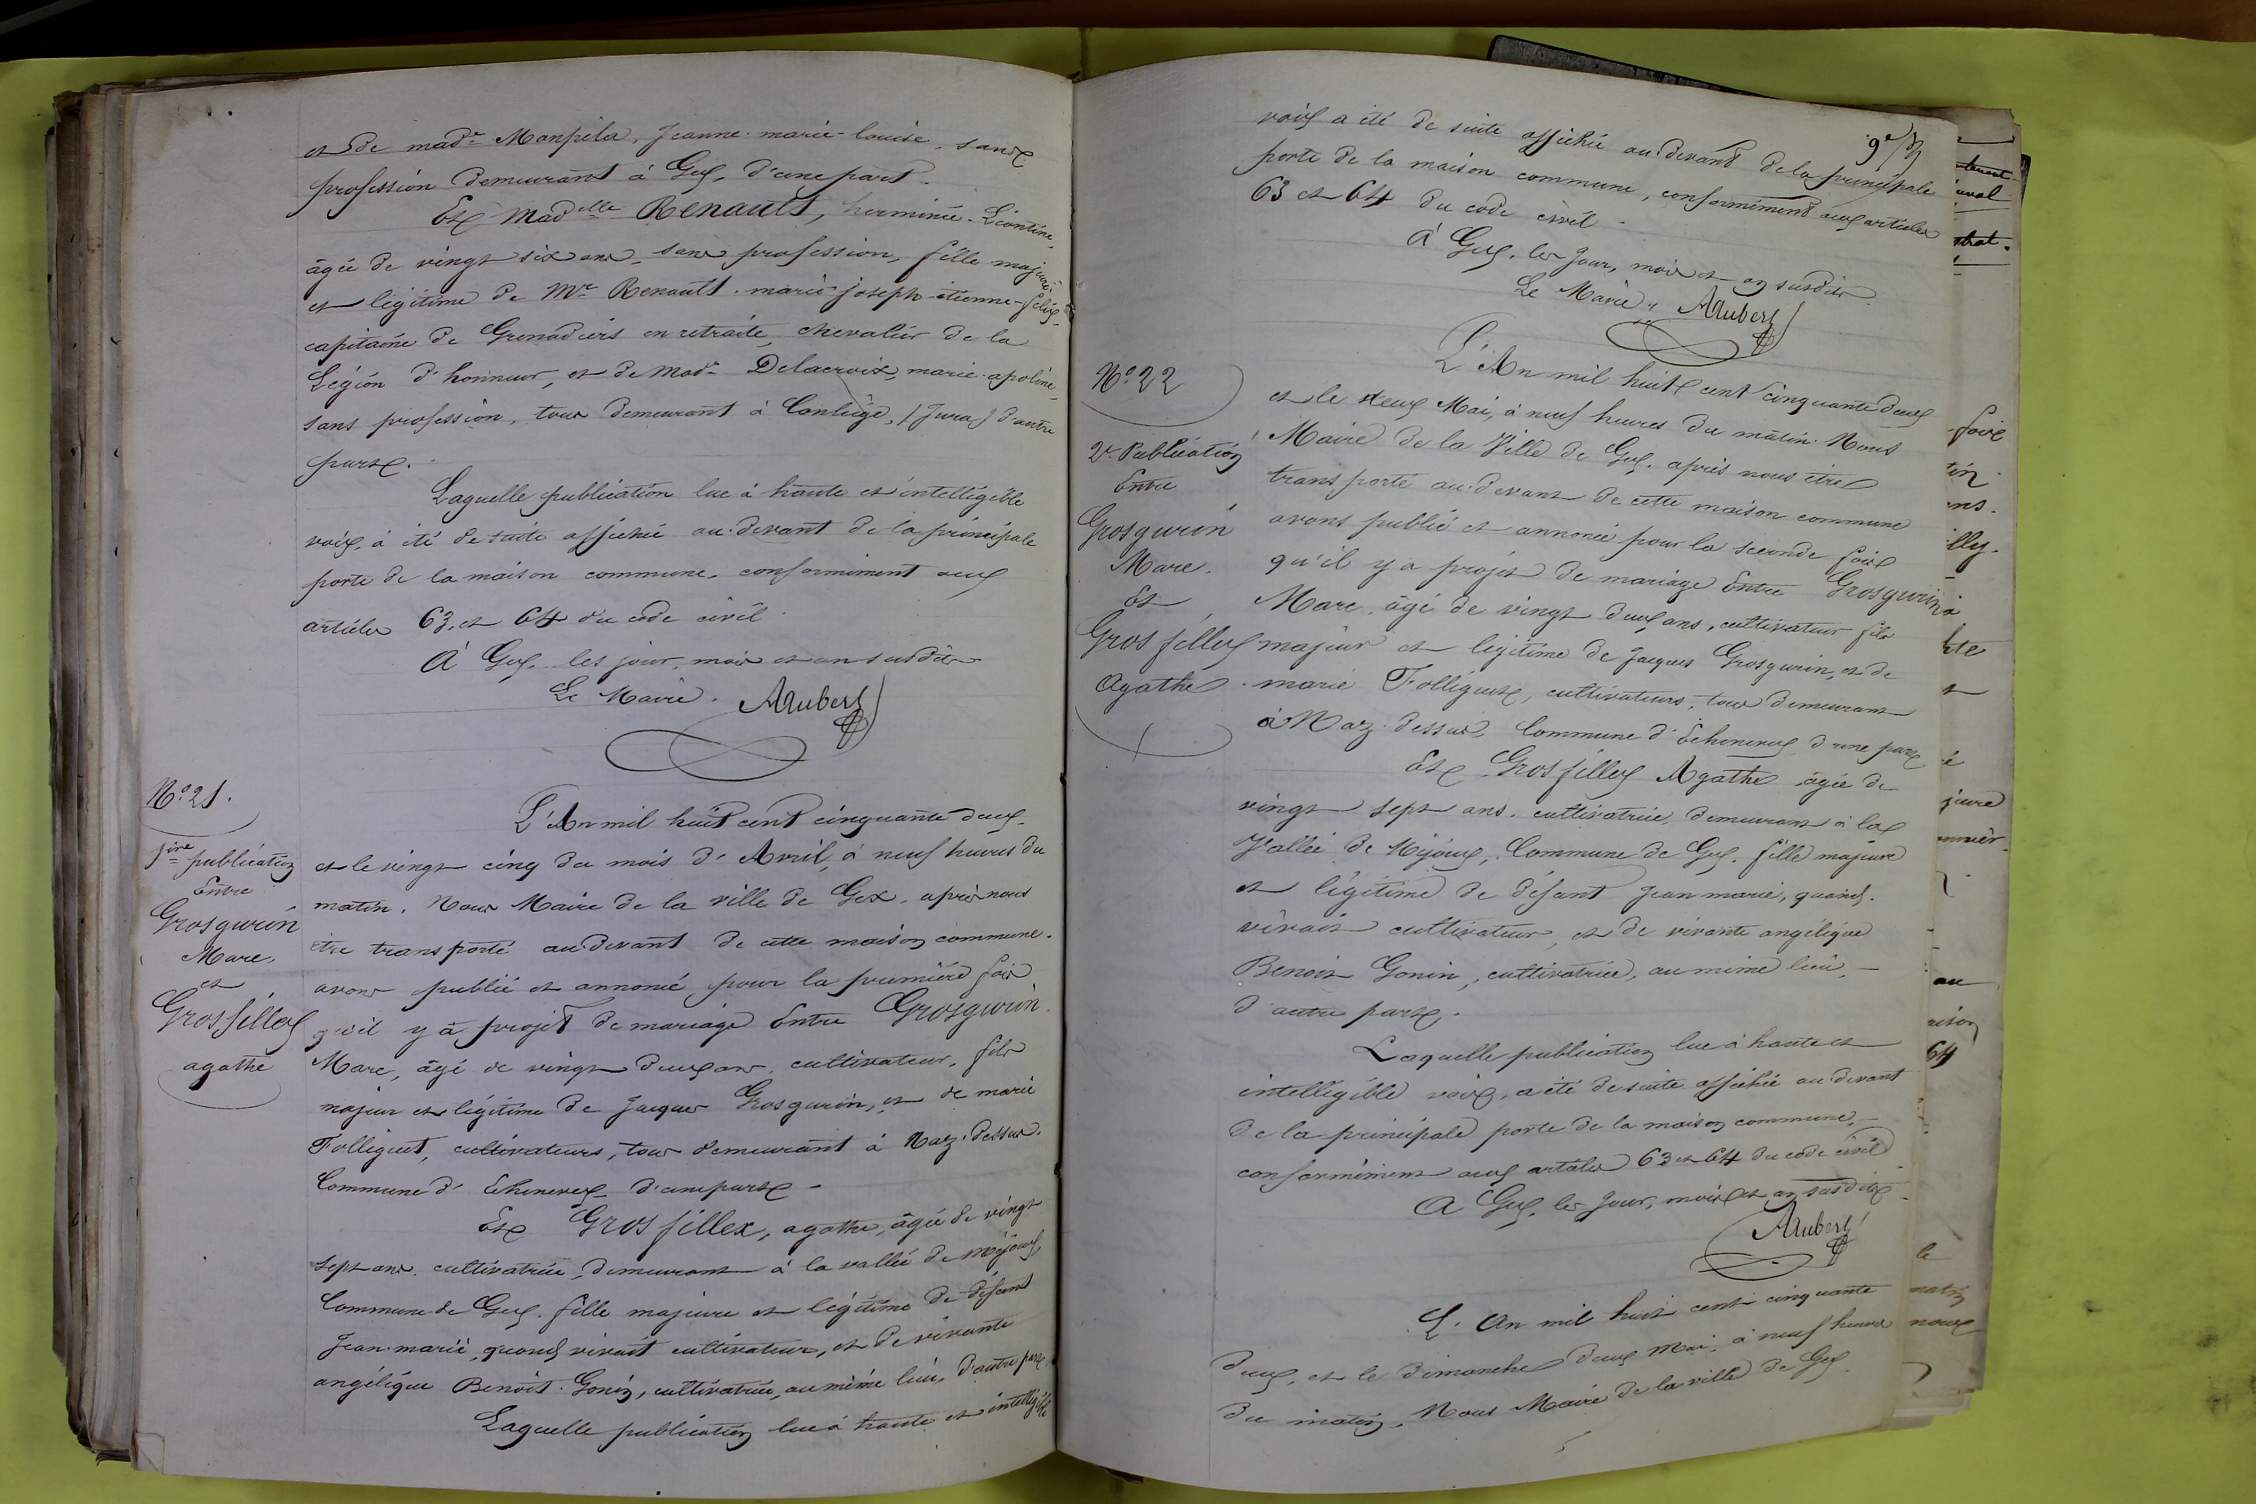 et de mad.e Monpela, Jeanne-marie-louise, sans
profession demeurant à Gex, d'une part.
Et Mad.elle Renault, herminie-Léontine,
âgée de vingt six ans, sans profession, fille majeure
et légitime de Mr. Renault, marie-joseph-étienne-félix,
capitaine de Grenadiers en retraite, chevalier de la
Légion d'honneur, et de Mad.e Delacroix, marie-apoline,
sans profession, tous demeurant à Conliège, (Jura) d'autre
part.
Laquelle publication lue à haute et intelligible
voix, à été de suite affichée au-devant de la principale
porte de la maison commune, conformément aux
articles 63, et 64 du code civil.
A Gex, les jour, mois et an susdits
Le Maire. AAubert
N.o 21.
1.ère publication
Entre
Grosgurin
Marc,
et
Grosfillex
agathe
L'An mil huit cent cinquante deux
et le vingt cinq du mois d'Avril, à neuf heures du
matin. Nous Maire de la ville de Gex, après nous
être transporté au-devant de cette maison commune.
avons publié et annoncé pour la première fois
qu'il y a projet de mariage Entre Grosgurin
Marc, âgé de vingt deux ans, cultivateur, fils
majeur et légitime de Jacques Grosgurin, et de marie
Folliguet, cultivateurs, tous demeurant à Naz-dessus.
Commune d'Echenevex d'une part
Et Grosfillex, agathe, âgée de vingt
sept ans, cultivatrice, demeurant à la vallée de Mijoux
Commune de Gex. fille majeure et légitime de défunt
Jean-marie, quand vivait cultivateur, et de vivante
angélique Benoit-Gonin, cultivatrice, au même lieu, d'autre part.
Laquelle publication lue à haute et intelligible
9e
voix a été de suite affichée au-devant de la principale
porte de la maison commune, conformément aux articles
63 et 64 du code civil.
A Gex, les Jour, mois et an susdits
Le Maire, AAubert
N.o 22
2e. Publication
Entre
Grosgurin
Marc.
Et
Grosfillex
Agathe
L'An mil huit cent cinquante deux
et le deux Mai, à neuf heures du matin. Nous
Maire de la Ville de Gex, après nous être
transporté au-devant de cette maison commune
avons publié et annoncé pour la seconde fois
qu'il y a projet de mariage Entre Grosgurin
Marc, âgé de vingt deux ans, cultivateur fils
majeur et légitime de Jacques Grosgurin, et de
marie Folliguet, cultivateurs, tous demeurant
à Naz-dessus, Commune d'Echenevex d'une part
Et Grosfillex Agathe âgée de
vingt sept ans, cultivatrice, demeurant à la
Vallée de Mijoux, Commune de Gex. fille majeure
et légitime de défunt Jean marie, quand
vivait cultivateur, et de vivante angélique
Benoit Gonin, cultivatrice, au même lieu,
d'autre part.
Laquelle publication lue à haute et
intelligible voix, a été de suite affichée au-devant
de la principale porte de la maison commune,
conformément aux articles 63 et 64 du code civil
A Gex, les Jour, mois et an susdits
AAubert
L'An mil huit cent cinquante
deux, et le dimanche deux Mai, à neuf heures
du matin, Nous Maire de la ville de Gex